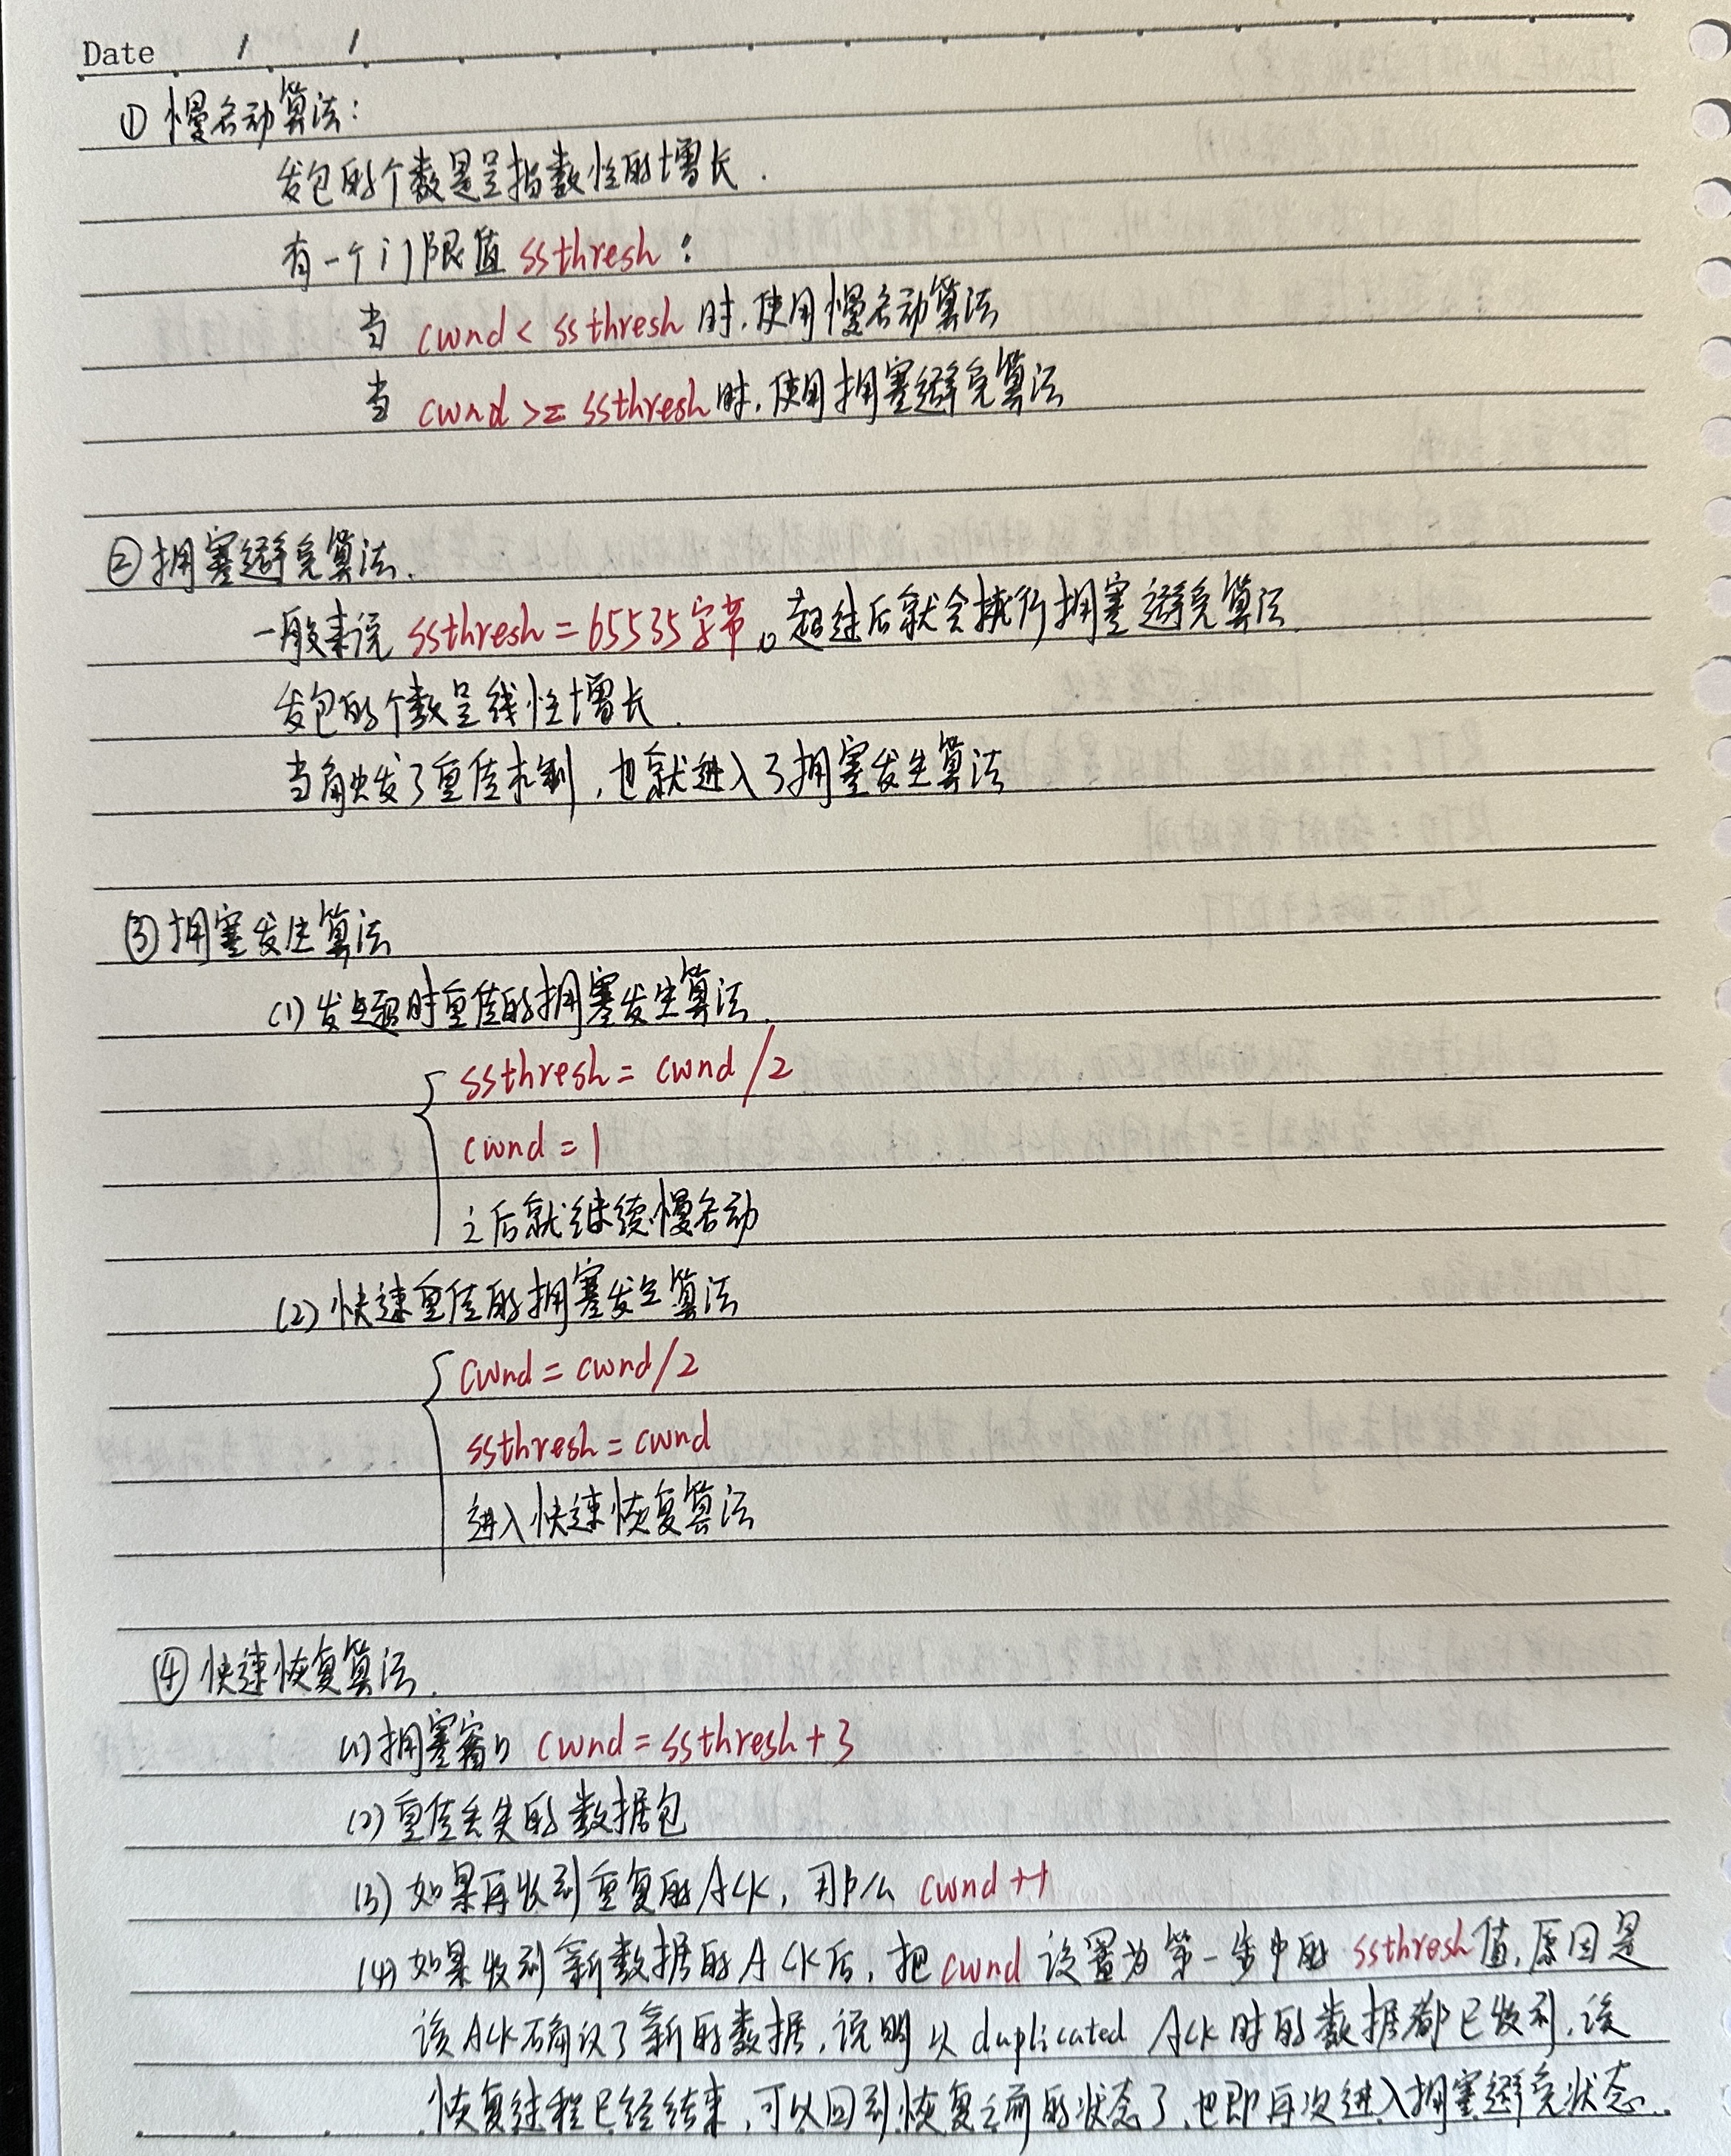 Date / /
① 慢启动算法：
发包的个数是呈指数性的增长．
有一个门限值 ssthresh：
当 cwnd < ssthresh 时，使用慢启动算法
当 cwnd >= ssthresh 时，使用拥塞避免算法
② 拥塞避免算法．
一般来说 ssthresh = 65535字节。超过后就会执行拥塞避免算法
发包的个数呈线性增长．
当触发了重传机制，也就进入了拥塞发生算法
③ 拥塞发生算法
(1) 发生超时重传的拥塞发生算法．
ssthresh = cwnd/2
cwnd = 1
之后就继续慢启动
(2) 快速重传的拥塞发生算法
cwnd = cwnd/2
ssthresh = cwnd
进入快速恢复算法
④ 快速恢复算法．
(1) 拥塞窗口 cwnd = ssthresh + 3
(2) 重传丢失的数据包
(3) 如果再收到重复的ACK，那么 cwnd++
(4) 如果收到新数据的ACK后，把cwnd设置为第一步中的 ssthresh值，原因是
该ACK确认了新的数据，说明从 duplicated ACK时的数据都已收到，该
恢复过程已经结束，可以回到恢复之前的状态了，也即再次进入拥塞避免状态．